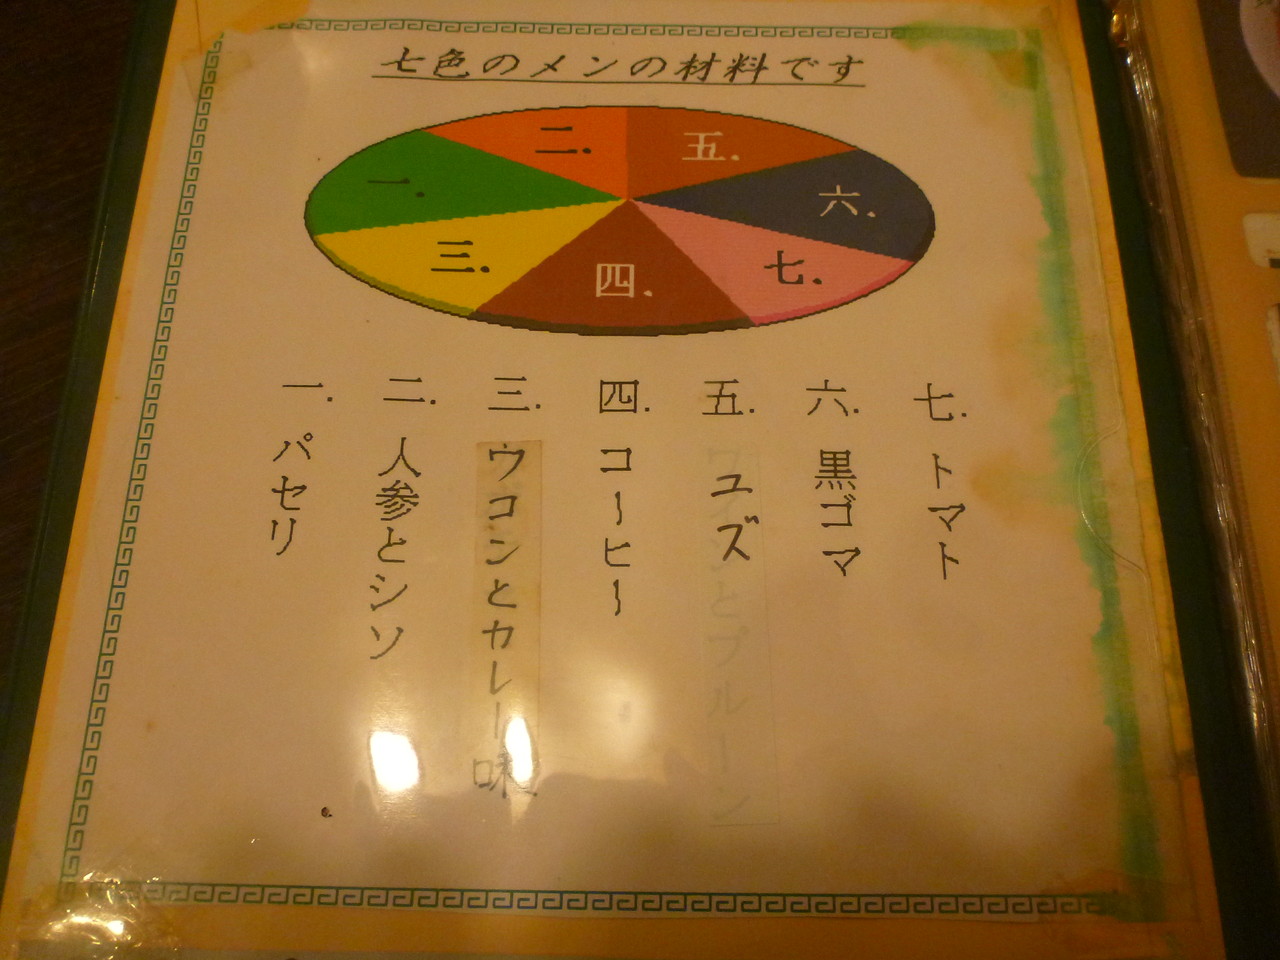 七色のメンの材料です
一.
二.
三.
四.
五.
六.
七.
一. パセリ
二. 人参とシソ
三. ウコンとカレー味
四. コーヒー
五. ユズ
六. 黒ゴマ
七. トマト